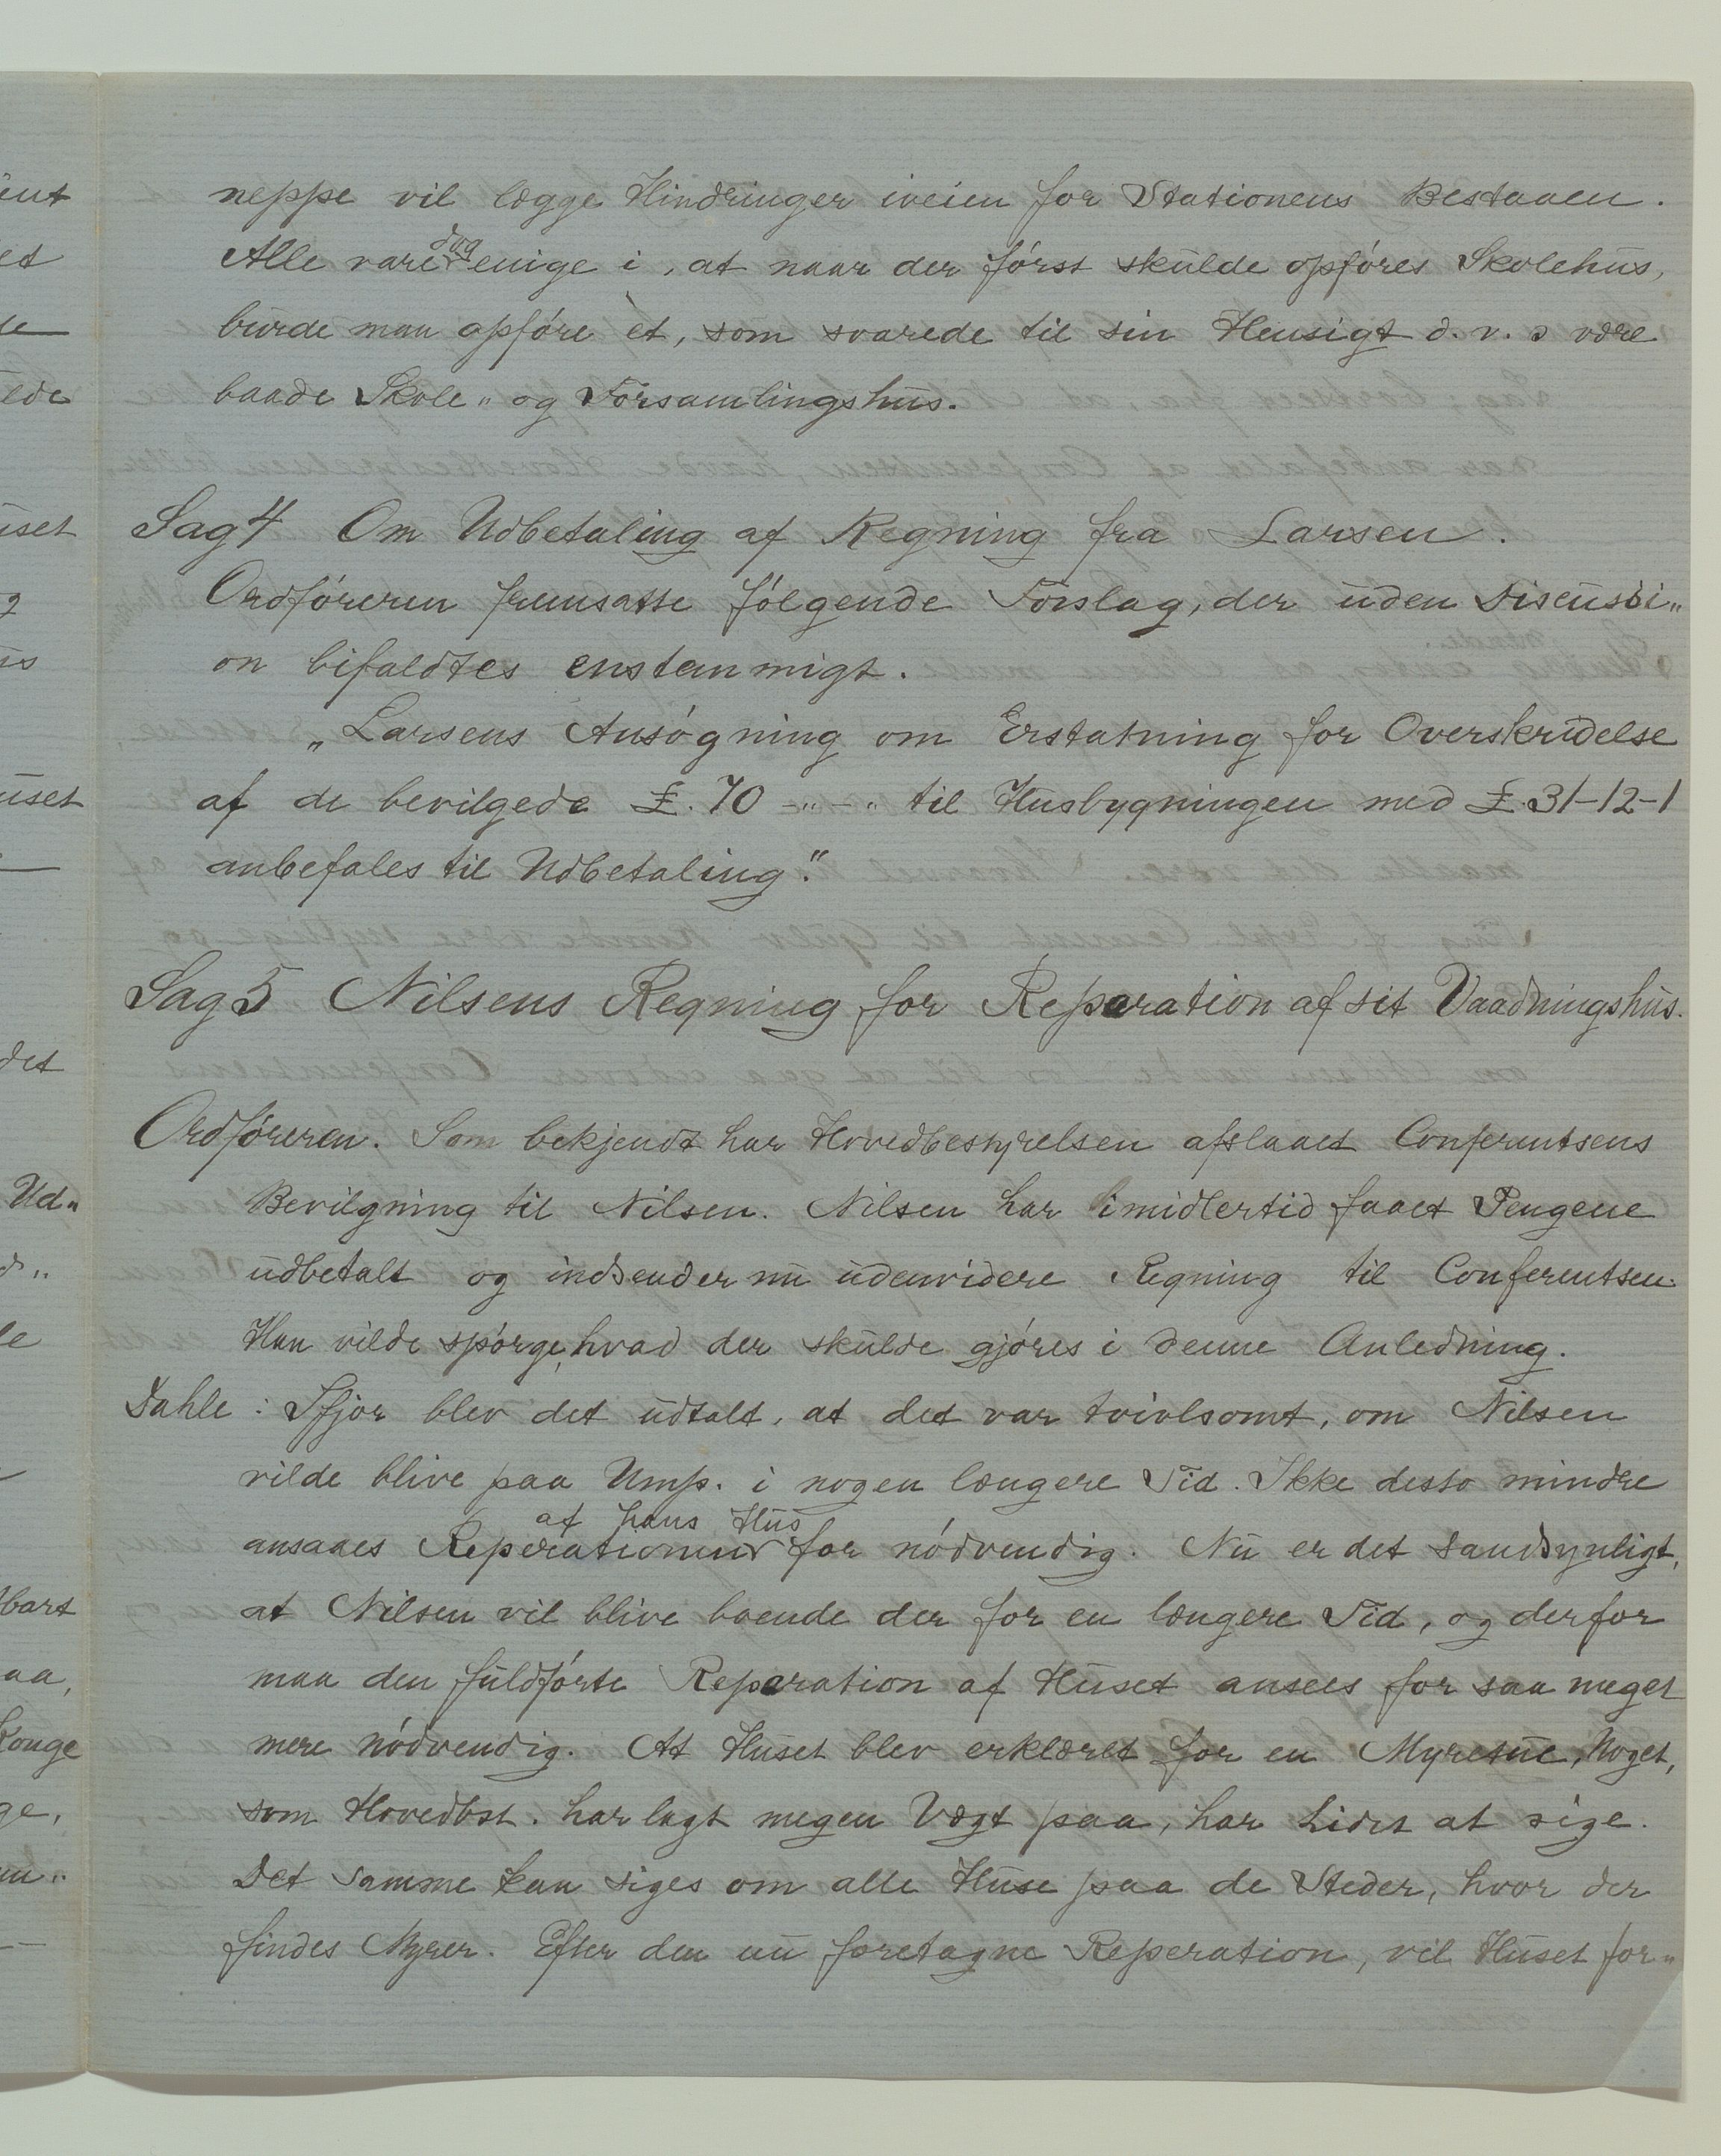 neppe vil lægge Hindringer iveien for Stationens Bestaaen.
Alle vare dog enige i, at naar der først skulde opføres Skolehus,
burde man opføre èt, som svarede til sin Hensigt d. v. s være
baade Skole„ og Forsamlingshus.
Sag 4 Om Udbetaling af Regning fra Larsen.
Ordføreren fremsatte følgende Forslag, der uden Discussi„
on bifaldtes enstemmigt.
„Larsens Ansøgning om Erstatning for Overskridelse
af de bevilgede £. 70 -„-„ til Husbygningen med £. 31-12-1
anbefales til Udbetaling."
Sag 5 Nilsens Regning for Reparation af sit Vaadningshus.
Ordføreren. Som bekjendt har Hovedbestyrelsen afslaaet Conferentsens
Bevilgning til Nilsen. Nilsen har imidlertid faaet Pengene
udbetalt og indsender nu udenvidere Regning til Conferentsen.
Han vilde spørge, hvad der skulde gjøres i denne Anledning.
Dahle: Ifjor blev det udtalt, at det var tvivlsomt, om Nilsen
vilde blive paa Ump. i nogen længere Tid. Ikke desto mindre
ansaaes Reperationen af hans Hus for nødvendig. Nu er det sandsynligt,
at Nilsen vil blive boende der for en længere Tid, og derfor
maa den fuldførte Reparation af Huset ansees for saa meget
mere nødvendig. At Huset blev erklæret for en Myretue, Noget,
som Hovedbst. har lagt megen Vægt paa, har Lidet at sige.
Det samme kan siges om alle Huse paa de Steder, hvor der
findes Myrer. Efter den nu foretagne Reperation, vil Huset for„